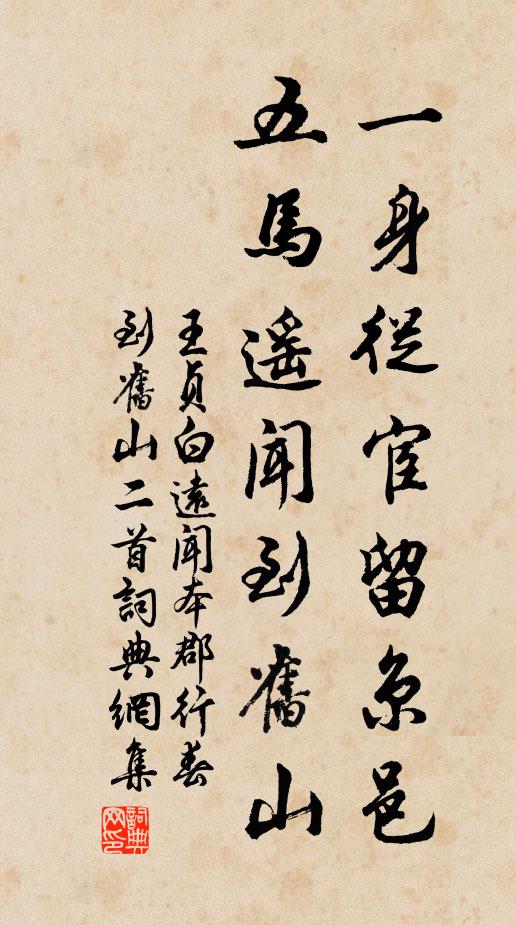 一身從宦留京邑
五馬遥聞到舊山
王貞白遠聞本郡行春
到舊山二首詞典網集
詞典网印